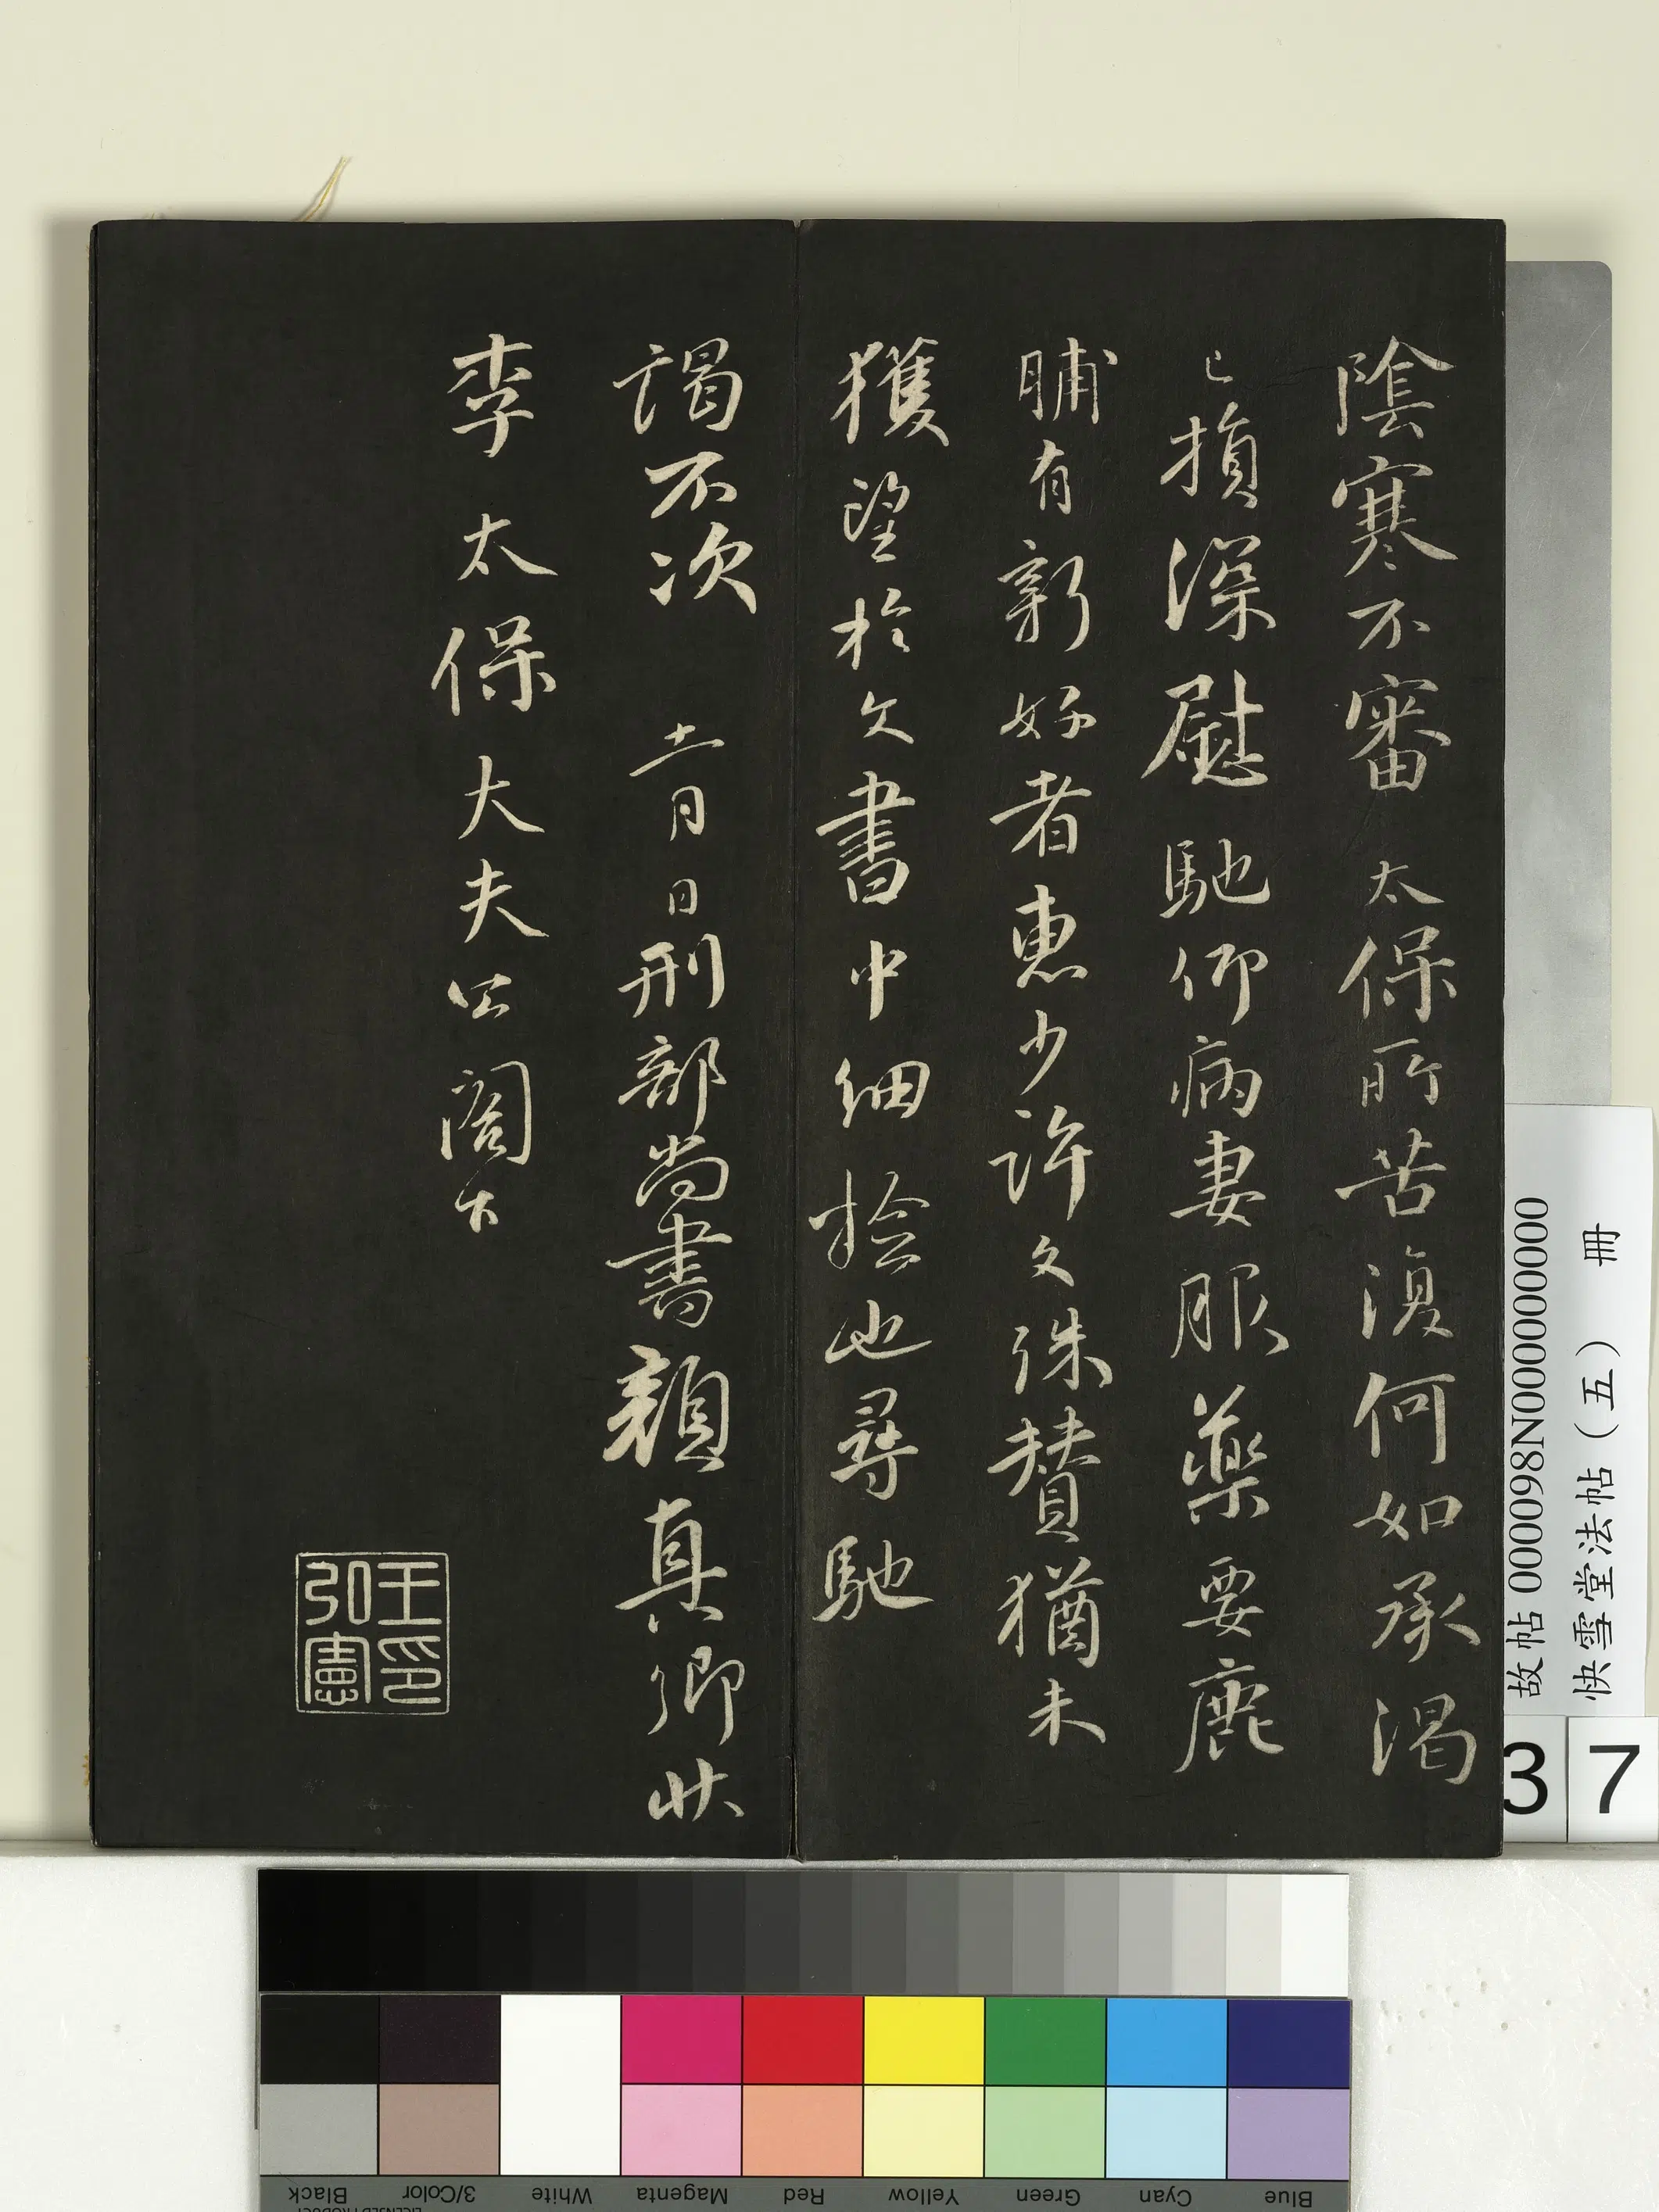 陰寒不審太保所苦復何如承渴
已損深慰馳仰病妻服藥要鹿
脯有新好者惠少許文殊賛猶未
獲望於文書中細撿也尋馳
謁不次十一月日刑部尚書顏真卿狀
李太保大夫公閤下
王印弘憲
故帖 000098N000000000
快雪堂法帖（五） 冊
3 7
Black 3/Color White Magenta Red Yellow Green Cyan Blue